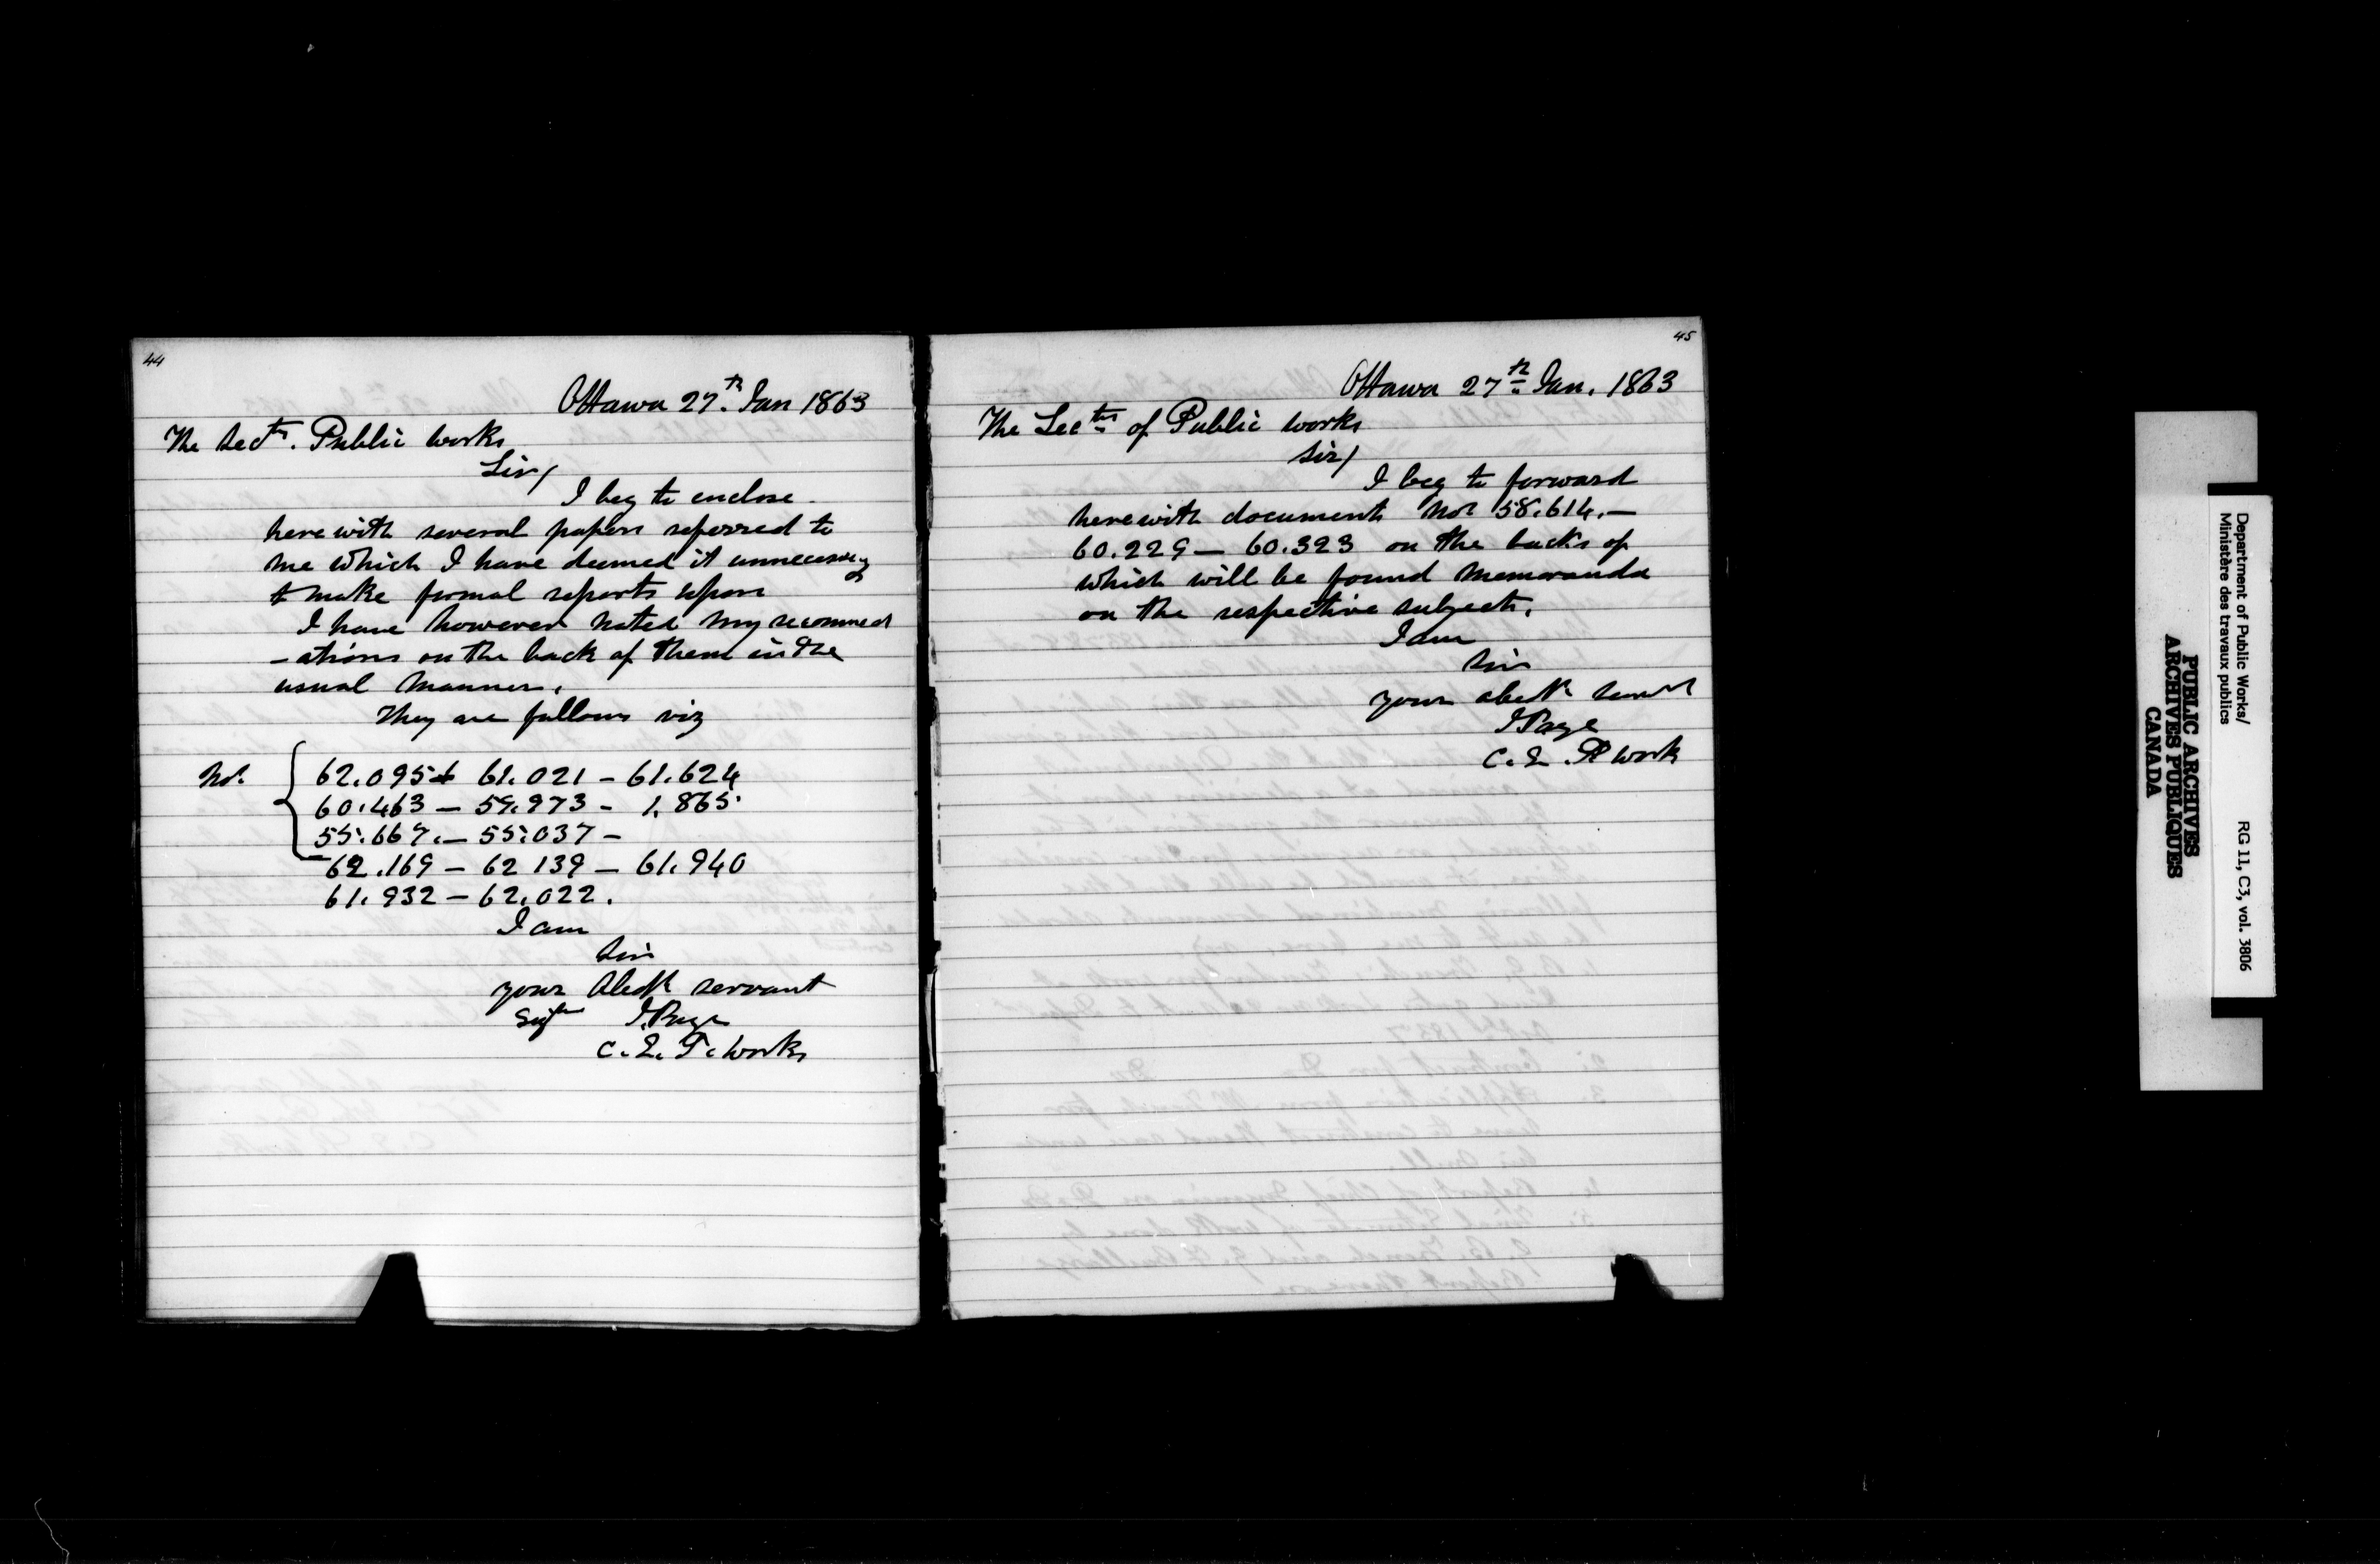 44
Ottawa 27.th Jan 1863
The Secty. Public Works
Sir/
I beg to enclose
herewith several papers referred to
me which I have deemed it unnecessary
to make formal reports upon
I have however noted my recommed
-ations on the back of them in the
usual manner.
They are follows viz
No. 62.095 61.021 - 61.624
60.463 - 59.973 - 1.865
55.667. - 55.037 -
62.169 - 62 139 - 61.940
61.932 - 62.022.
I am
Sir
your Obedt servant
J. Page
C. E. P. Works
45
Ottawa 27th Jan. 1863
The Secty of Public Works
Sir/
I beg to forward
herewith documents Nos 58.614. -
60.229 - 60.323 on the backs of
which will be found memoranda
on the respective subjects.
I am
Sir
your obedt servt
J Page
C. E. P Work
Department of Public Works/
Ministère des travaux publics
RG 11, C3, vol. 3806
PUBLIC ARCHIVES
ARCHIVES PUBLIQUES
CANADA